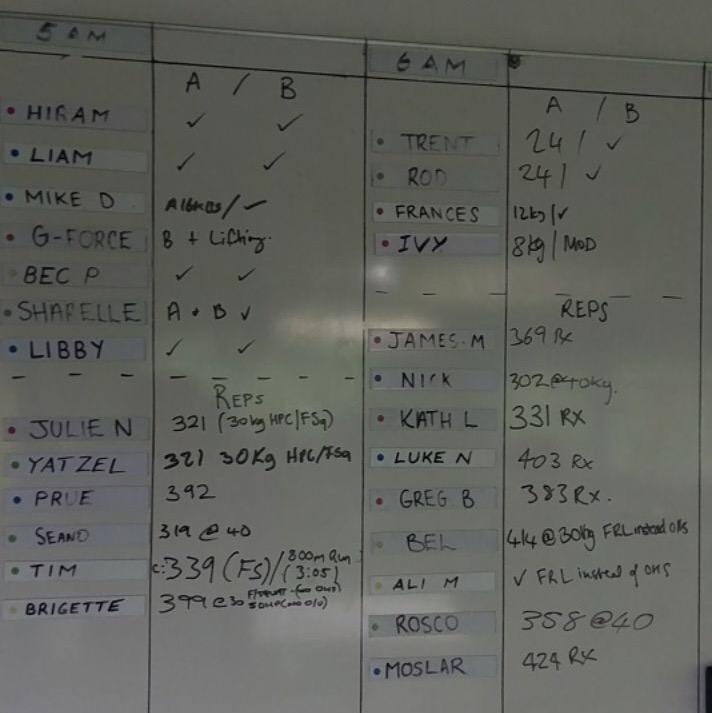 5 AM
A / B
HIRAM ✓ ✓
LIAM ✓ ✓
MIKE D / ✓
G-FORCE B + Lifting.
BEC P ✓ ✓
SHARELLE A + B ✓
LIBBY ✓ ✓
REPS
JULIE N 321 (30kg HPC/FSq)
YATZEL 321 30Kg HPC/FSq
PRUE 392
SEANO 319 @ 40
TIM c:339 (FS)/ 800m Run (3:05)
BRIGETTE 399 @ 30
6 AM
A / B
TRENT 24 / ✓
ROD 24 / ✓
FRANCES 12kg / ✓
IVY 8kg / MOD
REPS
JAMES.M 369 Rx
NICK 302 @ 40kg.
KATH L 331 RX
LUKE N 403 Rx
GREG B 383 Rx.
BEL 414 @ 30kg FRL instead OHS
ALI M ✓ FRL instead of OHS
ROSCO 358 @ 40
MOSLAR 424 RX